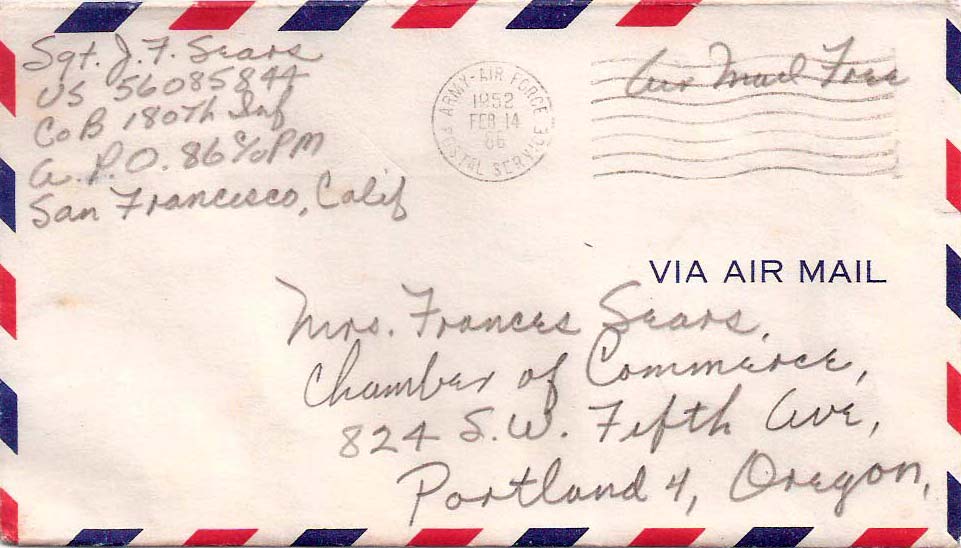 Sgt. J. F. Sears
US 56085844
Co B 180th Inf
A.P.O. 86 c/o PM
San Francisco, Calif
ARMY-AIR FORCE
1952
FEB 14
86
POSTAL SERVICE
Air Mail Free
VIA AIR MAIL
Mrs. Frances Sears,
Chamber of Commerce,
824 S.W. Fifth Ave,
Portland 4, Oregon,